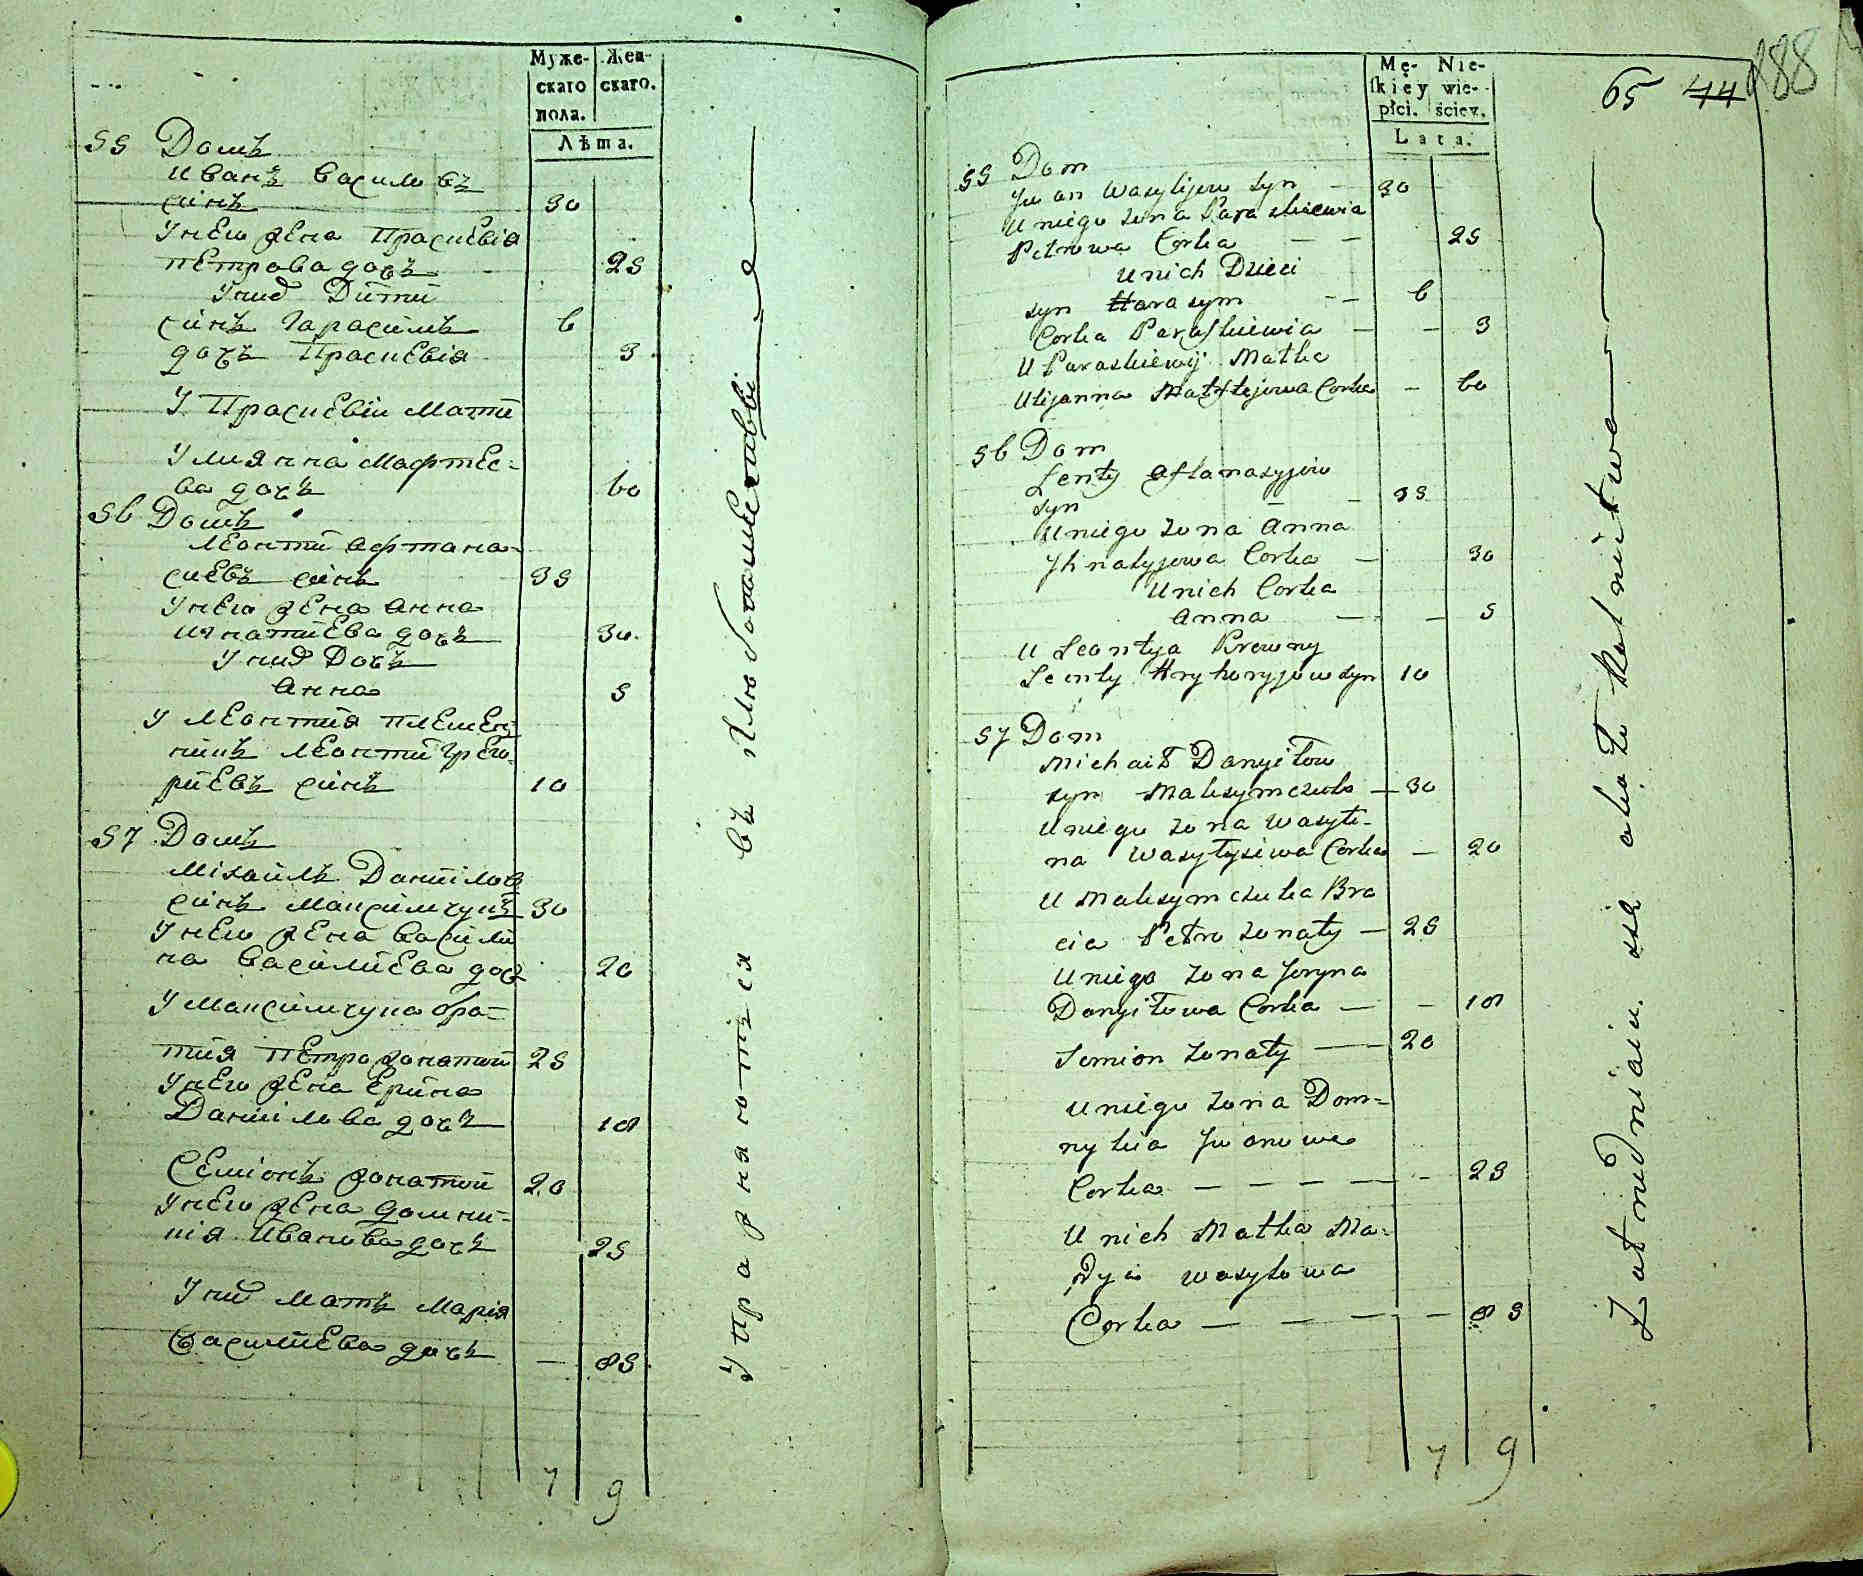 Муже- Жен-
скаго скаго.
пола.
Лѣта.
55 Домъ
Иванъ Василювъ
синъ 30
У нею жена Праскевія
Петрова дочъ 25
У них Дити
синъ Гарасимъ 6
дочъ Праскевія 3
У Праскевіи Мати
Улиянна Мафтее=
ва дочъ 60
56 Домъ
Леонтий Афтана=
сиевъ синъ 35
У нею жена Анна
Игнатиева дочъ 30
У них Дочъ
Анна 5
У Леонтия племен=
никъ Леонтий Грего=
риевъ синъ 10
57 Домъ
Міхаилъ Данііловъ
синъ Максимчукъ 30
У нею жена Васили
на Василиева дочъ 20
У Максимчука бра=
тия Петро жонатий 25
У нею жена Ерина
Данііловa дочъ 18
Семіонъ жонатий 20
У нею жена Домни=
кія Иванова дочъ 25
У них Мать Марія
Василиева дочъ — 85
7 9
Упражняются въ хлюбопашестві
Mę- Nie-
skiey wie-
płci. ściey.
Lata.
65 44 188
55 Dom
Iwan Wasylijow syn — 30
U niego żona Paraskiewia
Petrowa Corka — — 25
U nich Dzieci
syn Harasym — — 6
Corka Paraskiewia — — 3
U Paraskiewij Matka
Ulijanna Maftejowa Corka — 60
56 Dom
Lenty Aftanasyjow
syn — 35
U niego żona Anna
Ihnatyjowa Corka — 30
U nich Corka
Anna — — 5
U Leontya Krewny
Lenty Hryhoryjow syn 10
57 Dom
Michaił Danyiłow
syn Maksymczuk — 30
U niego żona Wasyli-
na Wasylyjewa Corka — 20
U Maksymczuka Bra
cia Petro żonaty — 25
U niego żona Jeryna
Danyiłowa Corka — — 18
Semion żonaty — — 20
U niego żona Dom=
nykia Iwanowa
Corka — — — — — 25
U nich Matka Ma=
ryia Wasylowa
Corka — — — — — 85
7 9
Zatrudniaiu się około Rolnictwa